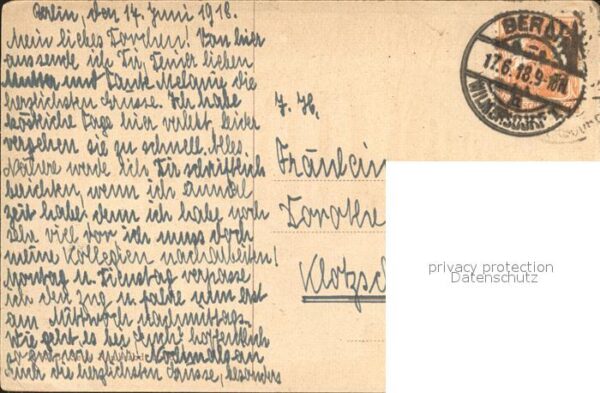 Berlin, den 14. Juni 1918.
Mein liebes Dorchen! Von hier
aus sende ich Dir, Deiner lieben
Mutter und Tante Melanie die
herzlichsten Grüsse. Ich habe
köstliche Tage hier verlebt, leider
vergehen sie zu schnell. Alles
Nähere werde ich Dir schriftlich
berichten, wenn ich einmal
Zeit habe, denn ich habe noch
sehr viel vor, ich muss doch
meine Kollegien nacharbeiten!
Montag u. Dienstag verpasse
ich den Zug u. fahre nun erst
am Mittwoch nachmittags.
Wie geht es bei Euch? hoffentlich
so gut wie mir. Nochmals an
Euch die herzlichsten Grüsse, besonders
BERLIN
17.6.18.9-10V
WILMERSDORF 1
I. H.
Fräulein
Dorothe
Klotzsc
privacy protection
Datenschutz